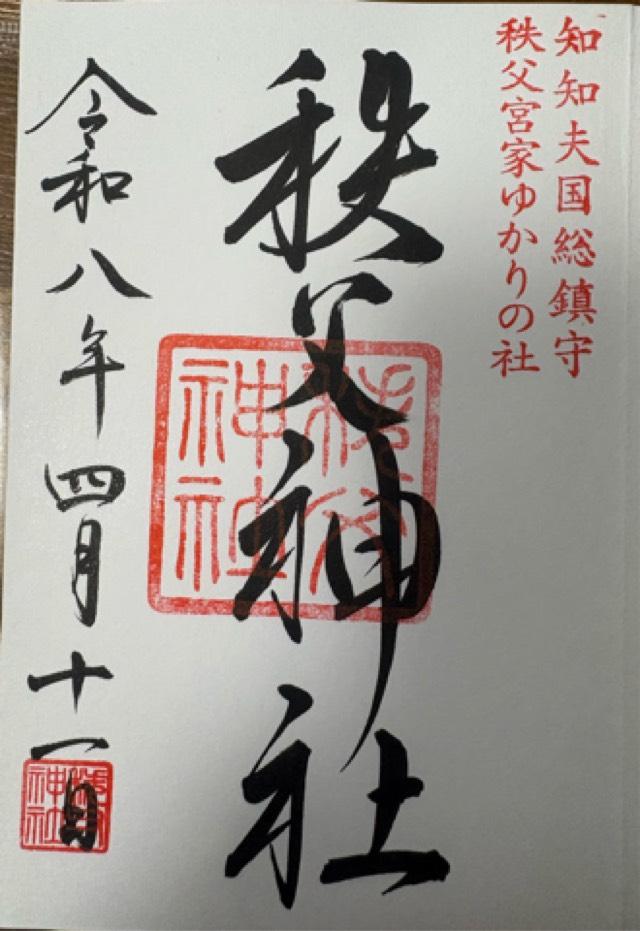 知知夫国総鎮守
秩父宮家ゆかりの社
秩父神社
秩父神社
令和八年四月十一日
秩父神社